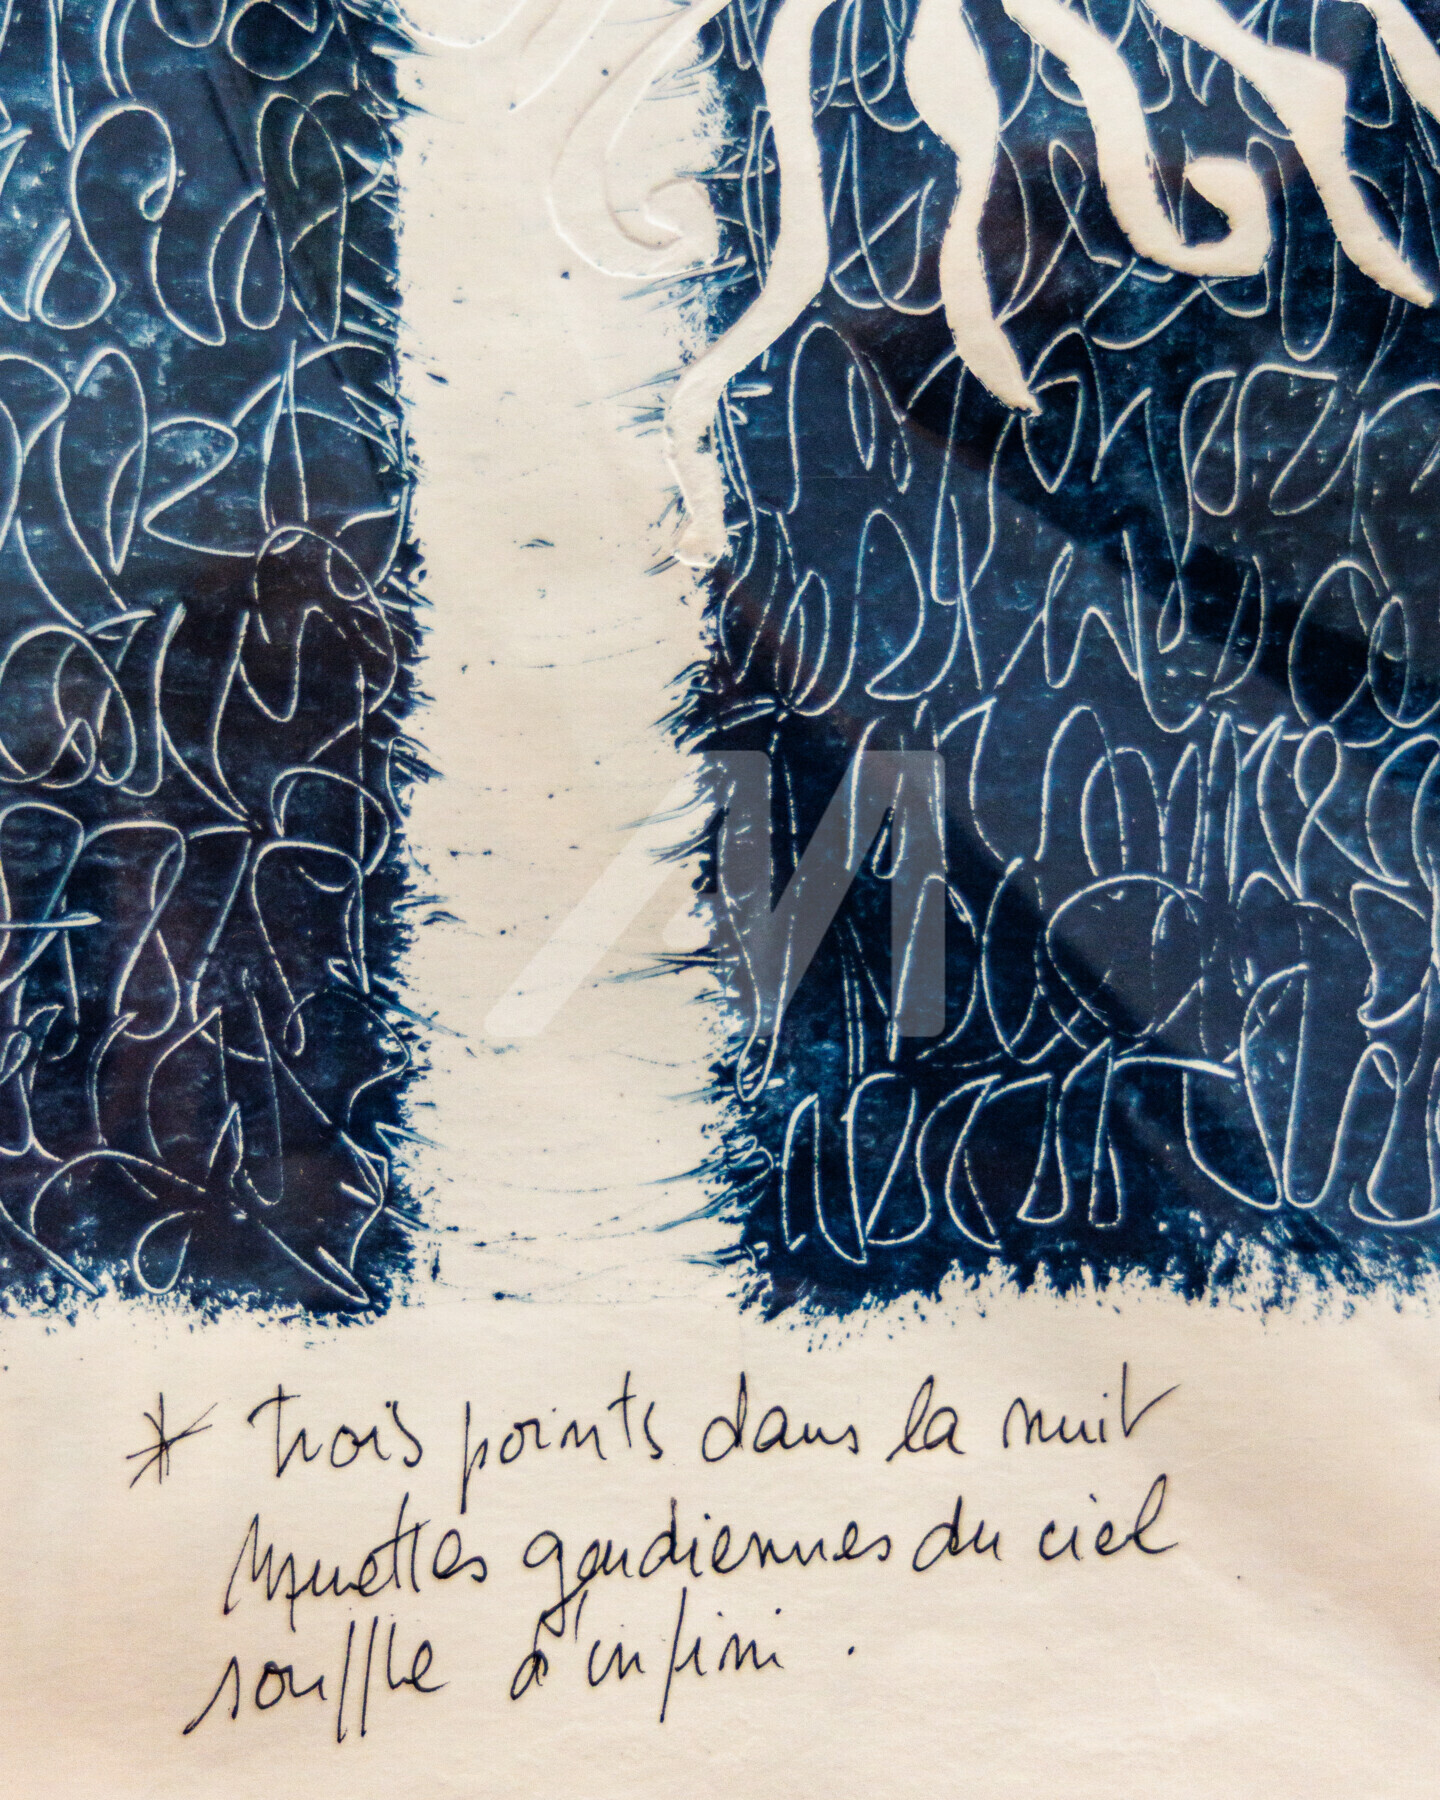 * trois points dans la nuit
muettes gardiennes du ciel
souffle d'infini.